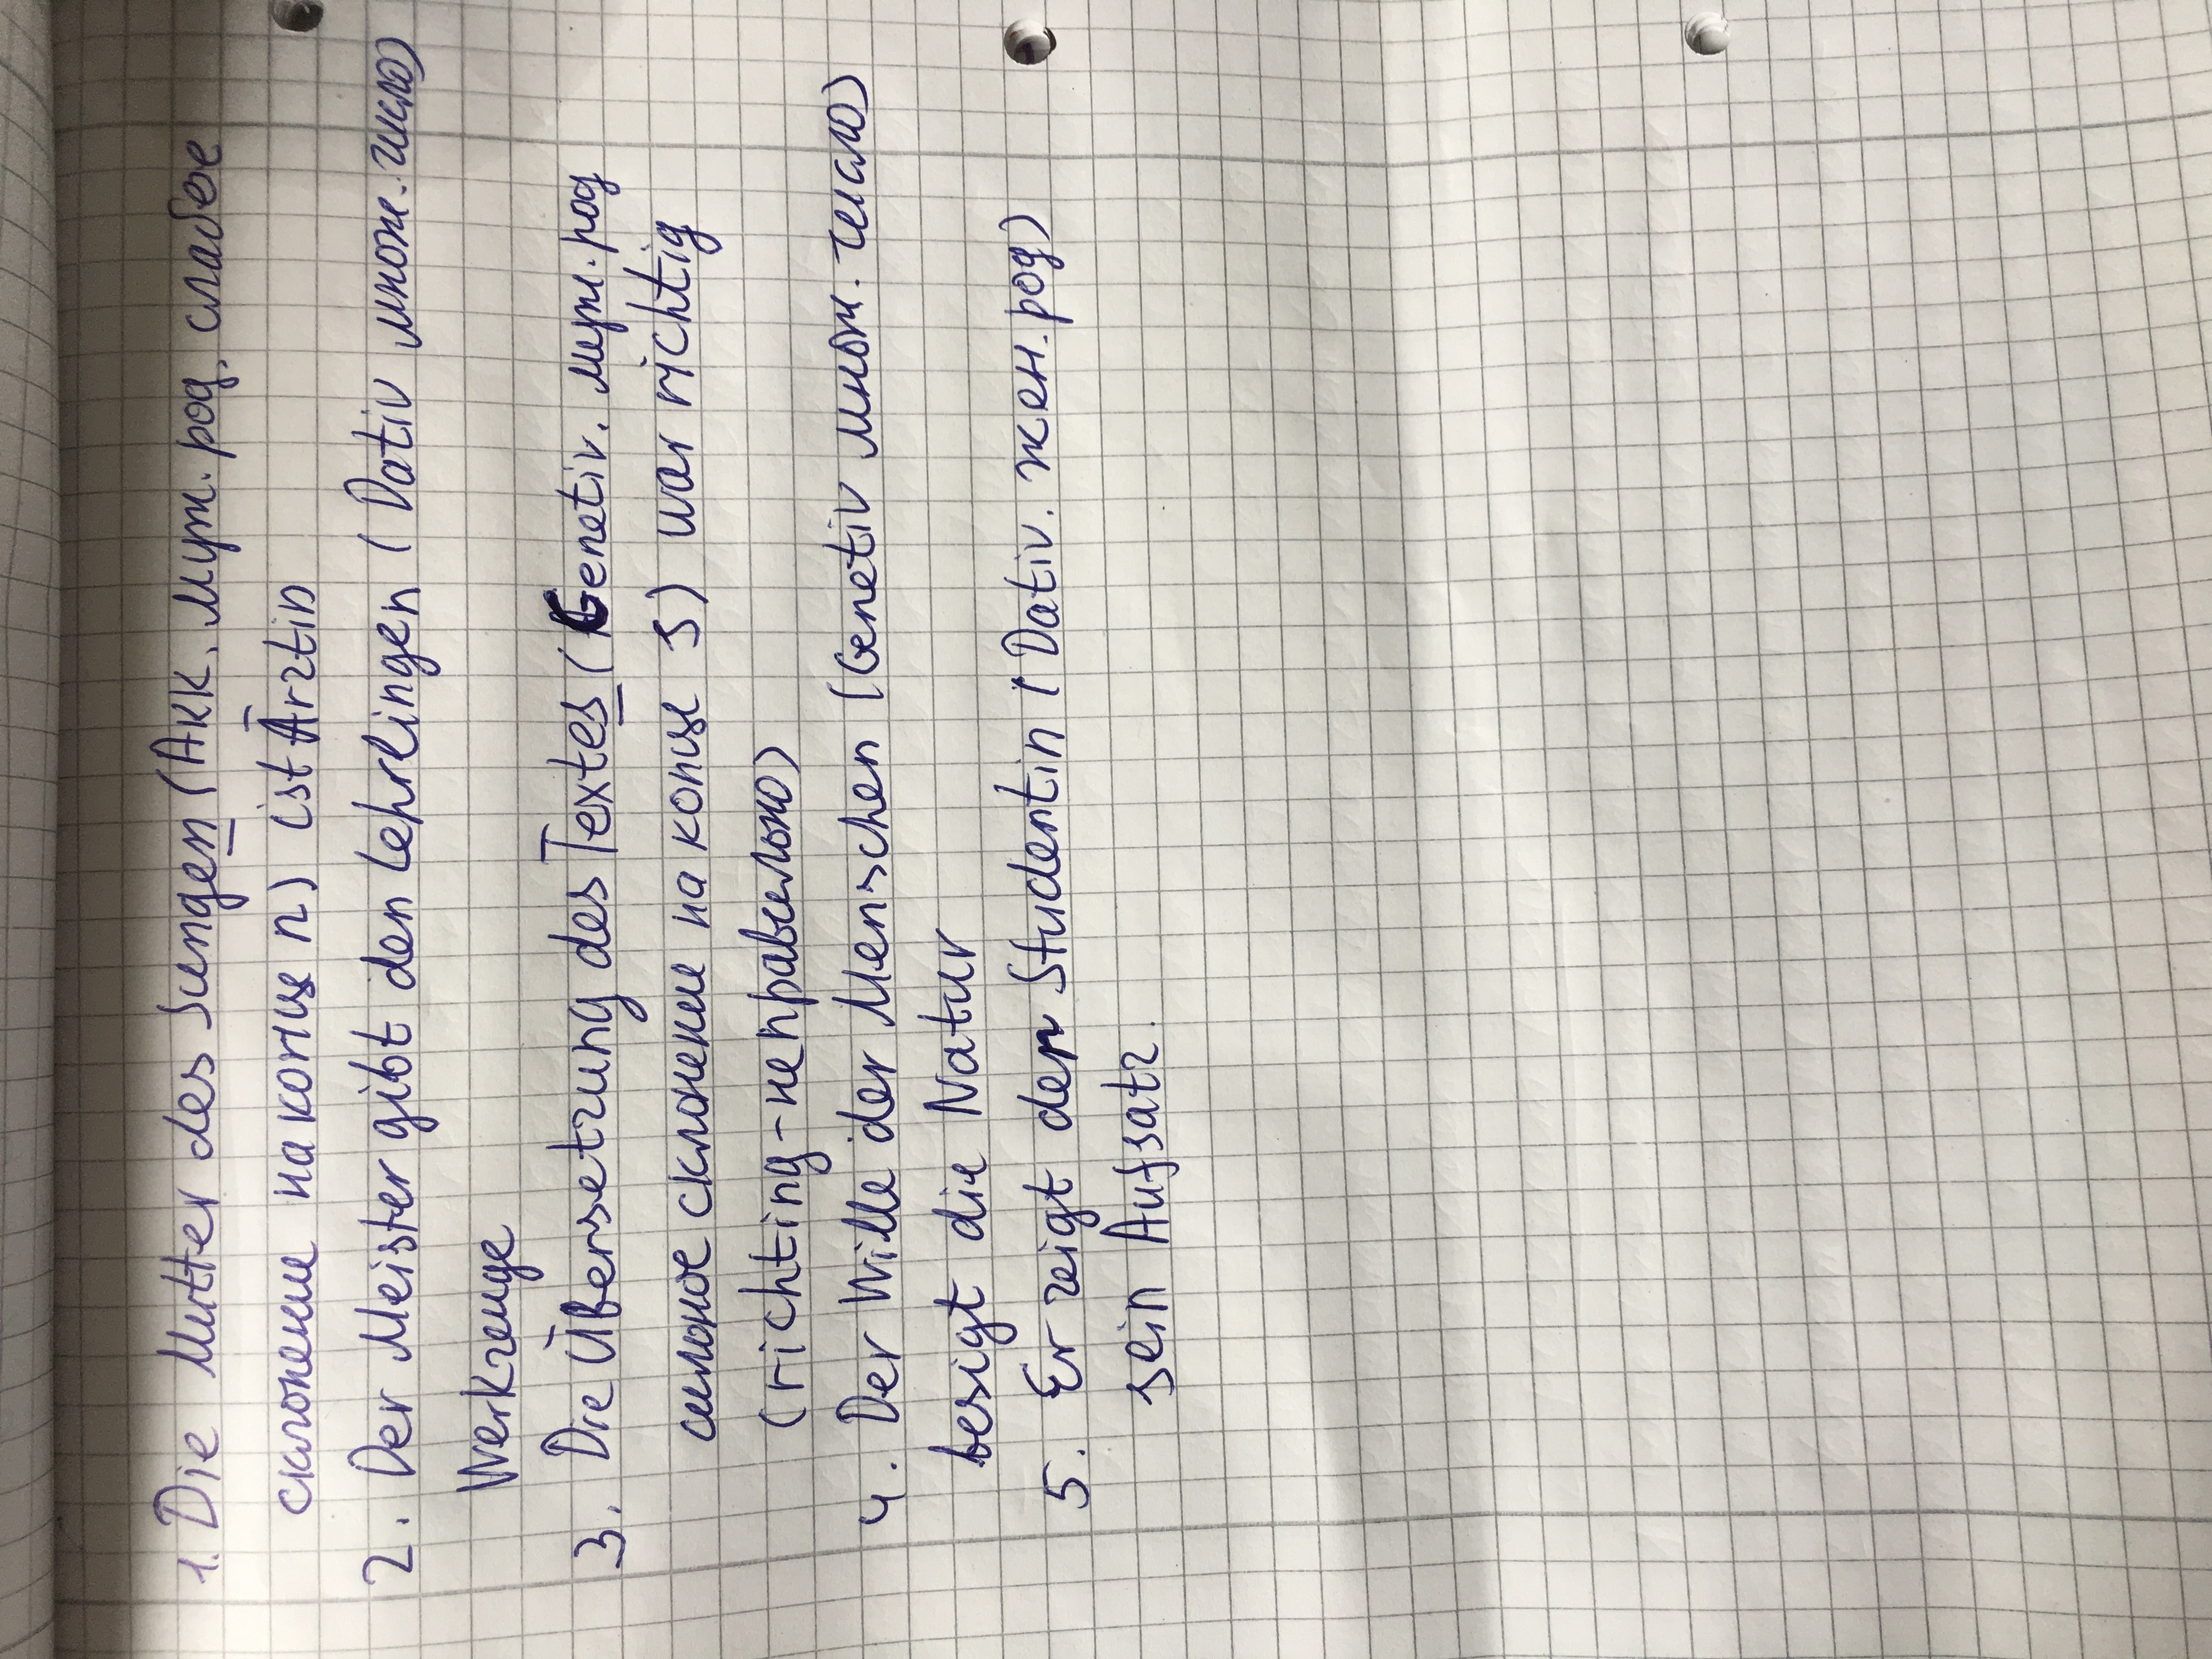 1. Die Mutter des Jungen (Акк. муж. род. слабое
склонение на конце n) ist Ärztin
2. Der Meister gibt den Lehrlingen (Dativ множ. число)
Werkzeuge
3. Die Übersetzung des Textes (Genetiv. муж. род
сильное склонение на конце s) war richtig
(richting - неправильно)
4. Der Wille der Menschen (Genetiv множ. число)
besigt die Natur
5. Er zeigt der Studentin (Dativ. жен. род)
sein Aufsatz.